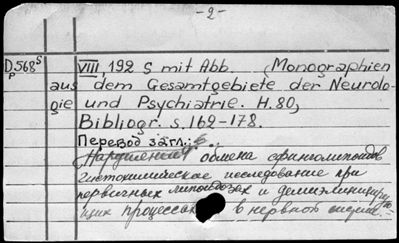 - 2 -
D 568 s
p
VIII, 192 S mit Abb. (Monographien
aus dem Gesamtgebiete der Neurolo-
gie und Psychiatrie. H. 80)
Bibliogr. s. 162-178.
Перевод загл.:
Нарушения обмена сфинголипоидов
гистохимическое исследование при
первичных липоидозах и демиэлинизирую-
щих процессах в нервной системе.